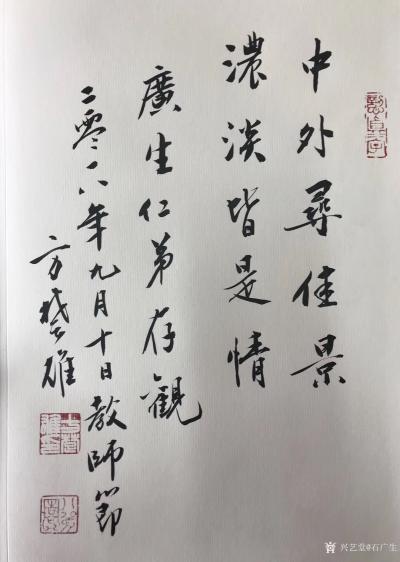 中外尋佳景
濃淡皆是情
廣生仁弟存觀
二零一八年九月十日教師節
方楚雄
兴艺堂@石广生